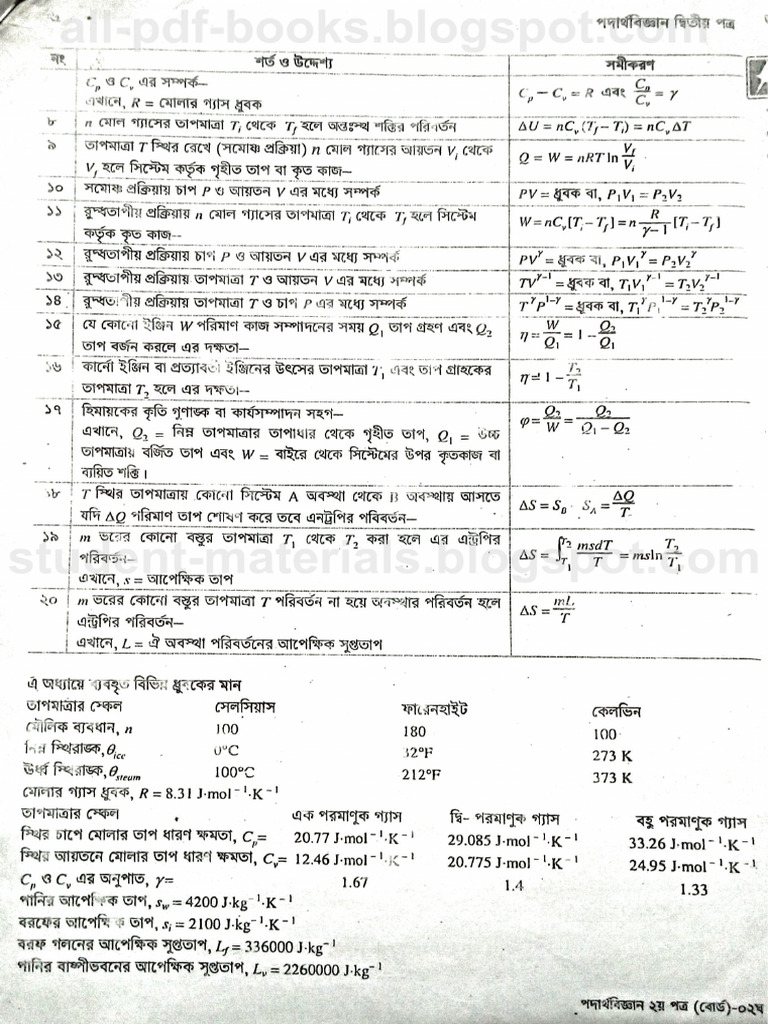 all-pdf-books.blogspot.com
পদার্থবিজ্ঞান দ্বিতীয় পত্র
নং শর্ত ও উদ্দেশ্য সমীকরণ
C_p ও C_v এর সম্পর্ক—
এখানে, R = মোলার গ্যাস ধ্রুবক
C_p − C_v = R এবং C_p/C_v = γ
৮ n মোল গ্যাসের তাপমাত্রা T_i থেকে T_f হলে অন্তঃস্থ শক্তির পরিবর্তন ΔU = nC_v (T_f − T_i) = nC_v ΔT
৯ তাপমাত্রা T স্থির রেখে (সমোষ্ণ প্রক্রিয়া) n মোল গ্যাসের আয়তন V_i থেকে
V_f হলে সিস্টেম কর্তৃক গৃহীত তাপ বা কৃত কাজ—
Q = W = nRT ln V_f/V_i
১০ সমোষ্ণ প্রক্রিয়ায় চাপ P ও আয়তন V এর মধ্যে সম্পর্ক PV = ধ্রুবক বা, P₁V₁ = P₂V₂
১১ রুদ্ধতাপীয় প্রক্রিয়ায় n মোল গ্যাসের তাপমাত্রা T_i থেকে T_f হলে সিস্টেম
কর্তৃক কৃত কাজ--
W = nC_v[T_i − T_f] = n R/(γ−1) [T_i − T_f]
১২ রুদ্ধতাপীয় প্রক্রিয়ায় চাপ P ও আয়তন V এর মধ্যে সম্পর্ক PV^γ = ধ্রুবক বা, P₁V₁^γ = P₂V₂^γ
১৩ রুদ্ধতাপীয় প্রক্রিয়ায় তাপমাত্রা T ও আয়তন V এর মধ্যে সম্পর্ক TV^(γ−1) = ধ্রুবক বা, T₁V₁^(γ−1) = T₂V₂^(γ−1)
১৪ রুদ্ধতাপীয় প্রক্রিয়ায় তাপমাত্রা T ও চাপ P এর মধ্যে সম্পর্ক T^γP^(1−γ) = ধ্রুবক বা, T₁^γP₁^(1−γ) = T₂^γP₂^(1−γ)
১৫ যে কোনো ইঞ্জিন W পরিমাণ কাজ সম্পাদনের সময় Q₁ তাপ গ্রহণ এবং Q₂
তাপ বর্জন করলে এর দক্ষতা—
η = W/Q₁ = 1 − Q₂/Q₁
১৬ কার্নো ইঞ্জিন বা প্রত্যাবর্তী ইঞ্জিনের উৎসের তাপমাত্রা T₁ এবং তাপ গ্রাহকের
তাপমাত্রা T₂ হলে এর দক্ষতা--
η = 1 − T₂/T₁
১৭ হিমায়কের কৃতি গুণাঙ্ক বা কার্যসম্পাদন সহগ—
এখানে, Q₂ = নিম্ন তাপমাত্রার তাপাধার থেকে গৃহীত তাপ, Q₁ = উচ্চ
তাপমাত্রায় বর্জিত তাপ এবং W = বাইরে থেকে সিস্টেমের উপর কৃতকাজ বা
ব্যয়িত শক্তি।
φ = Q₂/W = Q₂/(Q₁ − Q₂)
১৮ T স্থির তাপমাত্রায় কোনো সিস্টেম A অবস্থা থেকে B অবস্থায় আসতে
যদি ΔQ পরিমাণ তাপ শোষণ করে তবে এনট্রপির পরিবর্তন—
ΔS = S_B S_A = ΔQ/T
১৯ m ভরের কোনো বস্তুর তাপমাত্রা T₁ থেকে T₂ করা হলে এর এন্ট্রপির
পরিবর্তন—
এখানে, s = আপেক্ষিক তাপ
ΔS = ∫_T₁^T₂ msdT/T = msln T₂/T₁
student-materials.blogspot.com
২০ m ভরের কোনো বস্তুর তাপমাত্রা T পরিবর্তন না হয়ে অবস্থার পরিবর্তন হলে
এন্ট্রপির পরিবর্তন—
এখানে, L = ঐ অবস্থা পরিবর্তনের আপেক্ষিক সুপ্ততাপ
ΔS = mL/T
এ অধ্যায়ে ব্যবহৃত বিভিন্ন ধ্রুবকের মান
তাপমাত্রার স্কেল সেলসিয়াস ফারেনহাইট কেলভিন
মৌলিক ব্যবধান, n 100 180 100
নিম্ন স্থিরাঙ্ক, θ_ice 0°C 32°F 273 K
ঊর্ধ্ব স্থিরাঙ্ক, θ_steam 100°C 212°F 373 K
মোলার গ্যাস ধ্রুবক, R = 8.31 J·mol⁻¹·K⁻¹
তাপমাত্রার স্কেল এক পরমাণুক গ্যাস দ্বি- পরমাণুক গ্যাস বহু পরমাণুক গ্যাস
স্থির চাপে মোলার তাপ ধারণ ক্ষমতা, C_p= 20.77 J·mol⁻¹·K⁻¹ 29.085 J·mol⁻¹·K⁻¹ 33.26 J·mol⁻¹·K⁻¹
স্থির আয়তনে মোলার তাপ ধারণ ক্ষমতা, C_v= 12.46 J·mol⁻¹·K⁻¹ 20.775 J·mol⁻¹·K⁻¹ 24.95 J·mol⁻¹·K⁻¹
C_p ও C_v এর অনুপাত, γ= 1.67 1.4 1.33
পানির আপেক্ষিক তাপ, s_w = 4200 J·kg⁻¹·K⁻¹
বরফের আপেক্ষিক তাপ, s_i = 2100 J·kg⁻¹·K⁻¹
বরফ গলনের আপেক্ষিক সুপ্ততাপ, L_f = 336000 J·kg⁻¹
পানির বাষ্পীভবনের আপেক্ষিক সুপ্ততাপ, L_v = 2260000 J·kg⁻¹
পদার্থবিজ্ঞান ২য় পত্র (বোর্ড)-০২ঘ